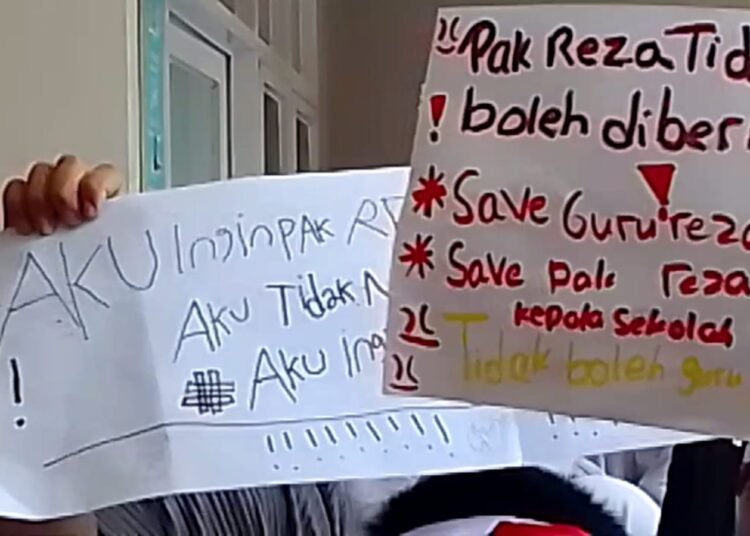 AKU InginPAK RE
Aku Tidak
# Aku ing
! !!!!!!!!!
Pak Reza Tid
! boleh diberi
* Save Guru reza
* Save pak reza
kepala sekolah
Tidak boleh guru